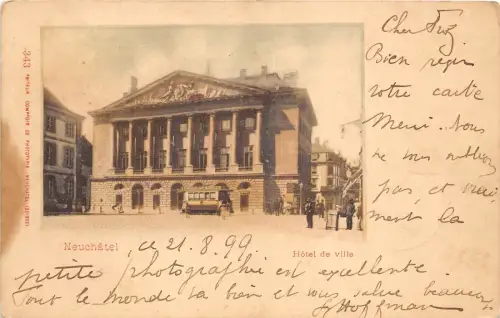 Cher Friz
Bien reçu
votre carte
Merci. Nous
ne vous oublions
pas, et vrai,
ment la
Neuchâtel
Hôtel de ville
ce 21. 8. 99
petite photographie est excellente.
Tout le monde va bien et vous salue beaucoup
Hoffmann
343